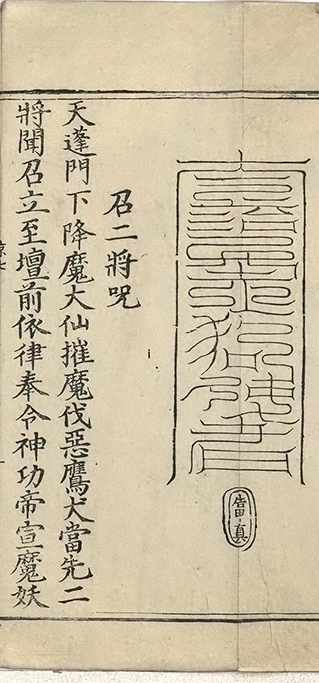 召二將呪
天蓬門下降魔大仙摧魔伐惡鷹犬當先二
將聞召立至壇前依律奉令神功帝宣魔妖